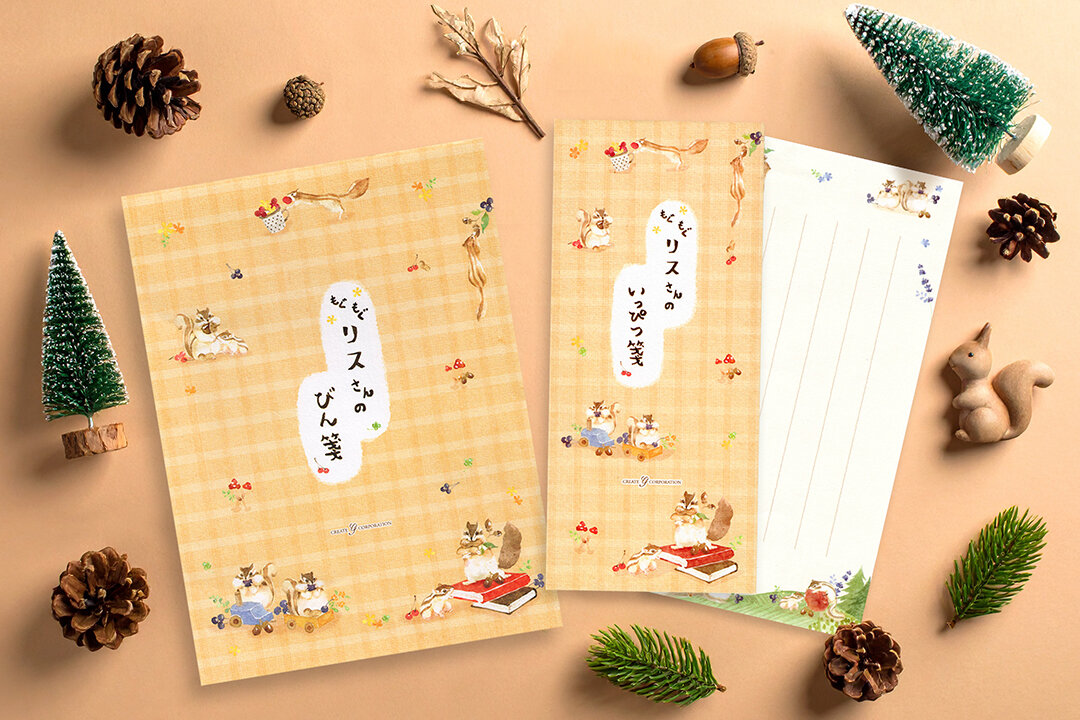 もぐもぐ
リスさんの
びん箋
CREATE g CORPORATION
もぐもぐ
リスさんの
いっぴつ箋
CREATE g CORPORATION